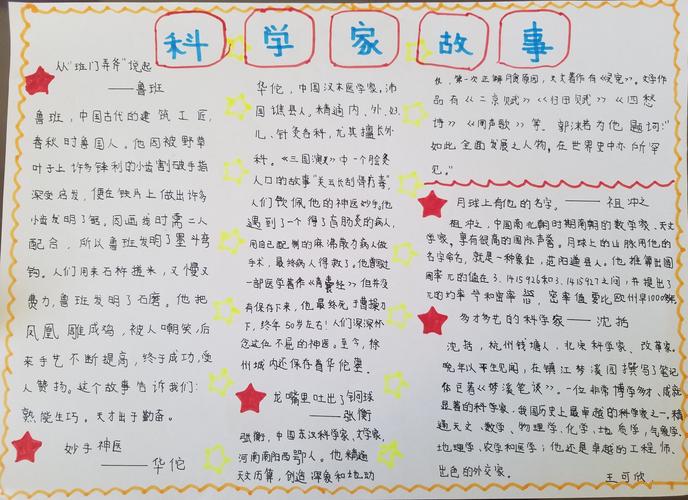 科学家故事
从"班门弄斧"说起
——鲁班
鲁班，中国古代的建筑工匠，
春秋时鲁国人。他因被野草
叶子上许多锋利的小齿割破手指
深受启发，便在铁片上做出许多
小齿发明了锯。因画线时需二人
配合，所以鲁班发明了墨斗弯
钩。人们用来石杵捣米，又慢又
费力，鲁班发明了石磨。他把
凤凰雕成鸡，被人嘲笑，后
来手艺不断提高，终于成功，受
人赞扬。这个故事告诉我们：
熟能生巧。天才出于勤奋。
妙手神医
——华佗
华佗，中国汉末医学家，沛
国谯县人。精通内、外、妇、
儿、针灸各科，尤其擅长外
科。《三国演义》中一个脍炙
人口的故事"关云长刮骨疗毒"，
人们钦佩他的神医妙手。他
遇到了一个得了盲肠炎的病人，
用自己配制的麻沸散为病人做
手术，最终病人得救了。他曾写过
一部医学著作《青囊经》但并没
有保存下来，他最终死于曹操刀
下，终年50岁左右！人们深深怀
念这位不屈的神医。至今，徐
州城内还保存着华佗墓。
龙嘴里吐出了铜球
——张衡
张衡，中国东汉科学家、文学家，
河南南阳西鄂人。他精通
天文历算，创造浑象和地动
仪，第一次正解月食原因，天文著作有《灵宪》。文学作
品有《二京赋》《归田赋》《四愁
诗》《同声歌》等。郭沫若为他题词："
如此全面发展之人物，在世界史中亦所罕
见。"
月球上有他的名字。——祖冲之
祖冲之，中国南北朝时期南朝的数学家、天文
学家，享有很高的国际声誉。月球上的山脉用他的
名字命名，就是一种象征，范阳遒县人。他推算出圆
周率π的值在3.1415926和3.1415927之间，并提出了
π的约率22/7和密率355/113，密率值要比欧州早1000多年。
多才多艺的科学家——沈括
沈括，杭州钱塘人，北宋科学家、改革家。
晚年以平生见闻，在镇江梦溪园撰写了笔记
体巨著《梦溪笔谈》。一位非常博学多才、成就
显著的科学家，我国历史上最卓越的科学家之一。精
通天文、数学、物理学、化学、地质学，气象学、
地理学、农学和医学；他还是卓越的工程师、
出色的外交家。
王可欣